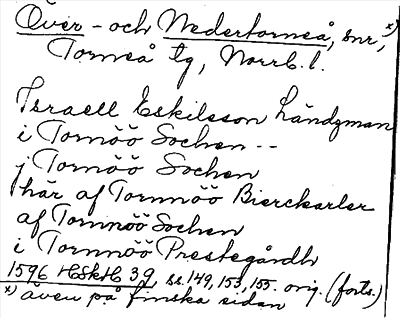 Över- och Nedertorneå, snr, x)
Torneå tg, Norrb. l.
Israell EskilssonLändzman
i Tornöö Sochen --
j Tornöö Sochen
här af Tornnöö Bierckarler
af Tornnöö Sochen
i Tornnöö Prestegårdh
1596 HSkH 39, ss. 149, 153, 155. orig. (forts.)
x) även på finska sidan